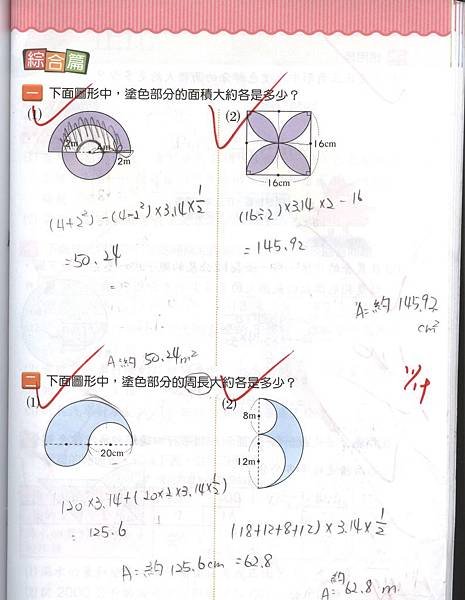 綜合篇
一 下面圖形中，塗色部分的面積大約各是多少？
(1)
2m
4m
2m
(4+2²)-(4-2²)×3.14×1/2
=50.24
A=約 50.24m²
(2)
16cm
16cm
(16÷2)×3.14×2-16
=145.92
A=約 145.92
cm²
二 下面圖形中，塗色部分的周長大約各是多少？
11/19
(1)
20cm
20×3.14+(20×2×3.14×1/2)
=125.6
A=約 125.6cm
(2)
8m
12m
(18+12+8+12)×3.14×1/2
=62.8
A=約 62.8 m